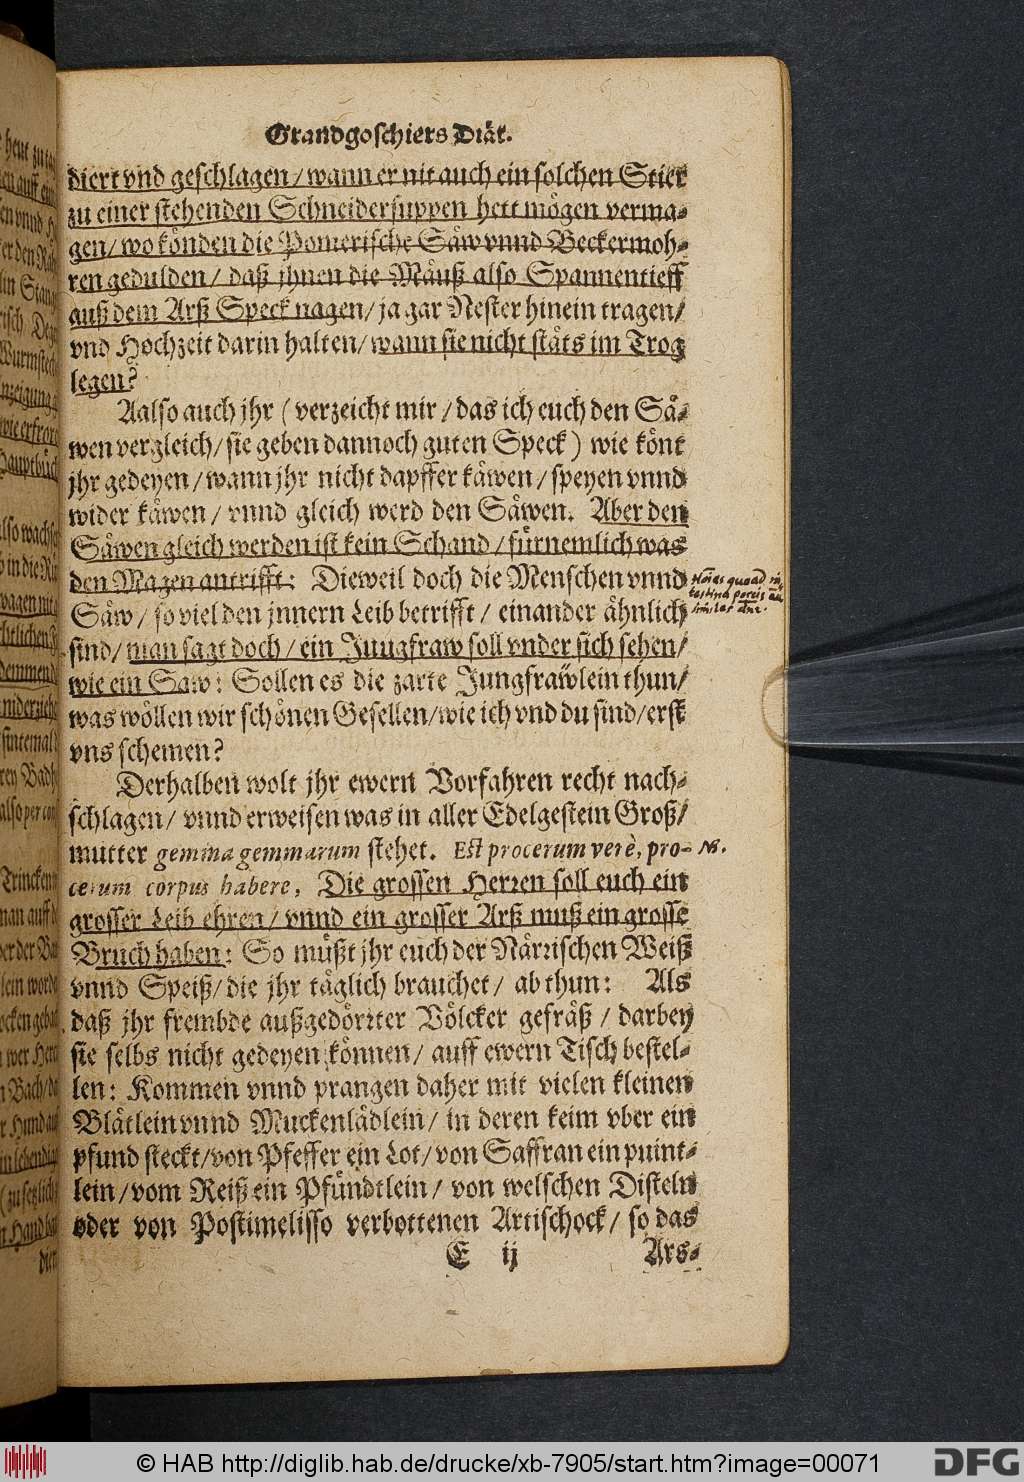 Grandgoschiers Diät.
diert vnd geschlagen / wann er nit auch ein solchen Stier
zu einer stehenden Schneidersuppen hett mögen verma-
gen / wo könden die Pomerische Säw vnnd Beckermoh-
ren gedulden / daß jhnen die Mäuß also Spannentieff
auß dem Arß Speck nagen / ja gar Nester hinein tragen /
vnd Hochzeit darin halten / wann sie nicht stäts im Trog
legen?
Aalso auch jhr ( verzeicht mir / das ich euch den Sä-
wen vergleich / sie geben dannoch guten Speck ) wie könt
jhr gedeyen / wann jhr nicht dapffer käwen / speyen vnnd
wider käwen / vnnd gleich werd den Säwen. Aber den
Säwen gleich werden ist kein Schand / fürnemlich was
den Magen antrifft: Dieweil doch die Menschen vnnd
Säw / so viel den jnnern Leib betrifft / einander ähnlich
sind / man sagt doch / ein Jungfraw soll vnder sich sehen /
wie ein Saw: Sollen es die zarte Jungfräwlein thun /
was wöllen wir schönen Gesellen / wie ich vnd du sind / erst
vns schemen?
Derhalben wolt jhr ewern Vorfahren recht nach-
schlagen / vnnd erweisen was in aller Edelgestein Groß /
mutter gemma gemmarum stehet. Est procerum verè, pro-
cerum corpus habere, Die grossen Herren soll euch ein
grosser Leib ehren / vnnd ein grosser Arß muß ein grosse
Bruch haben: So müßt jhr euch der Närrischen Weiß
vnnd Speiß / die jhr täglich brauchet / ab thun: Als
daß jhr frembde außgedörrter Völcker gefräß / darbey
sie selbs nicht gedeyen können / auff ewern Tisch bestel-
len: Kommen vnnd prangen daher mit vielen kleinen
Blätlein vnnd Muckenlädlein / in deren keim vber ein
pfund steckt / von Pfeffer ein Lot / von Saffran ein puint-
lein / vom Reiß ein Pfündtlein / von welschen Disteln
oder von Postimelisso verbottenen Artischock / so das
E ij Ars-
quoad
porcis
NB.
© HAB http://diglib.hab.de/drucke/xb-7905/start.htm?image=00071
DFG